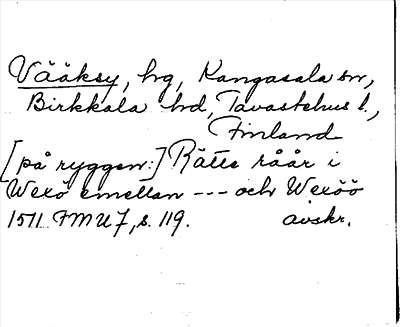 Vääksy, hg, Kangasala sn,
Birkkala hd, Tavastehus l.,
Finland
[på ryggen:] Rätte råår i
Wexö emellan --- och Wexöö
1511. FMU 7, s. 119. avskr.